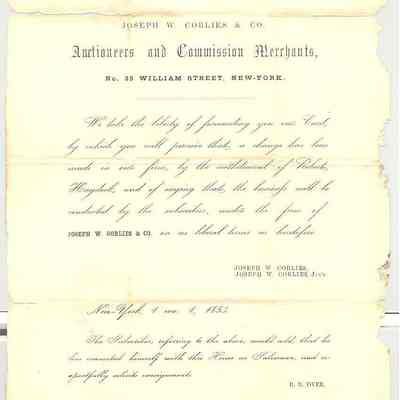 JOSEPH W. CORLIES & CO.
Auctioneers and Commission Merchants,
No. 35 WILLIAM STREET, NEW-YORK.
We take the liberty of forwarding you our Card,
by which you will perceive that, a change has been
made in our firm, by the withdrawal of Roberts
Haydock, and of saying that, the business will be
conducted by the subscribers, under the firm of
JOSEPH W. CORLIES & CO. on as liberal terms as heretofore
JOSEPH W. CORLIES,
JOSEPH W. CORLIES Junr
New-York, 1 mo. 1, 1853.
The Subscriber, referring to the above, would add, that he
has connected himself with this House as Salesman, and re-
spectfully solicits consignments.
DYER.